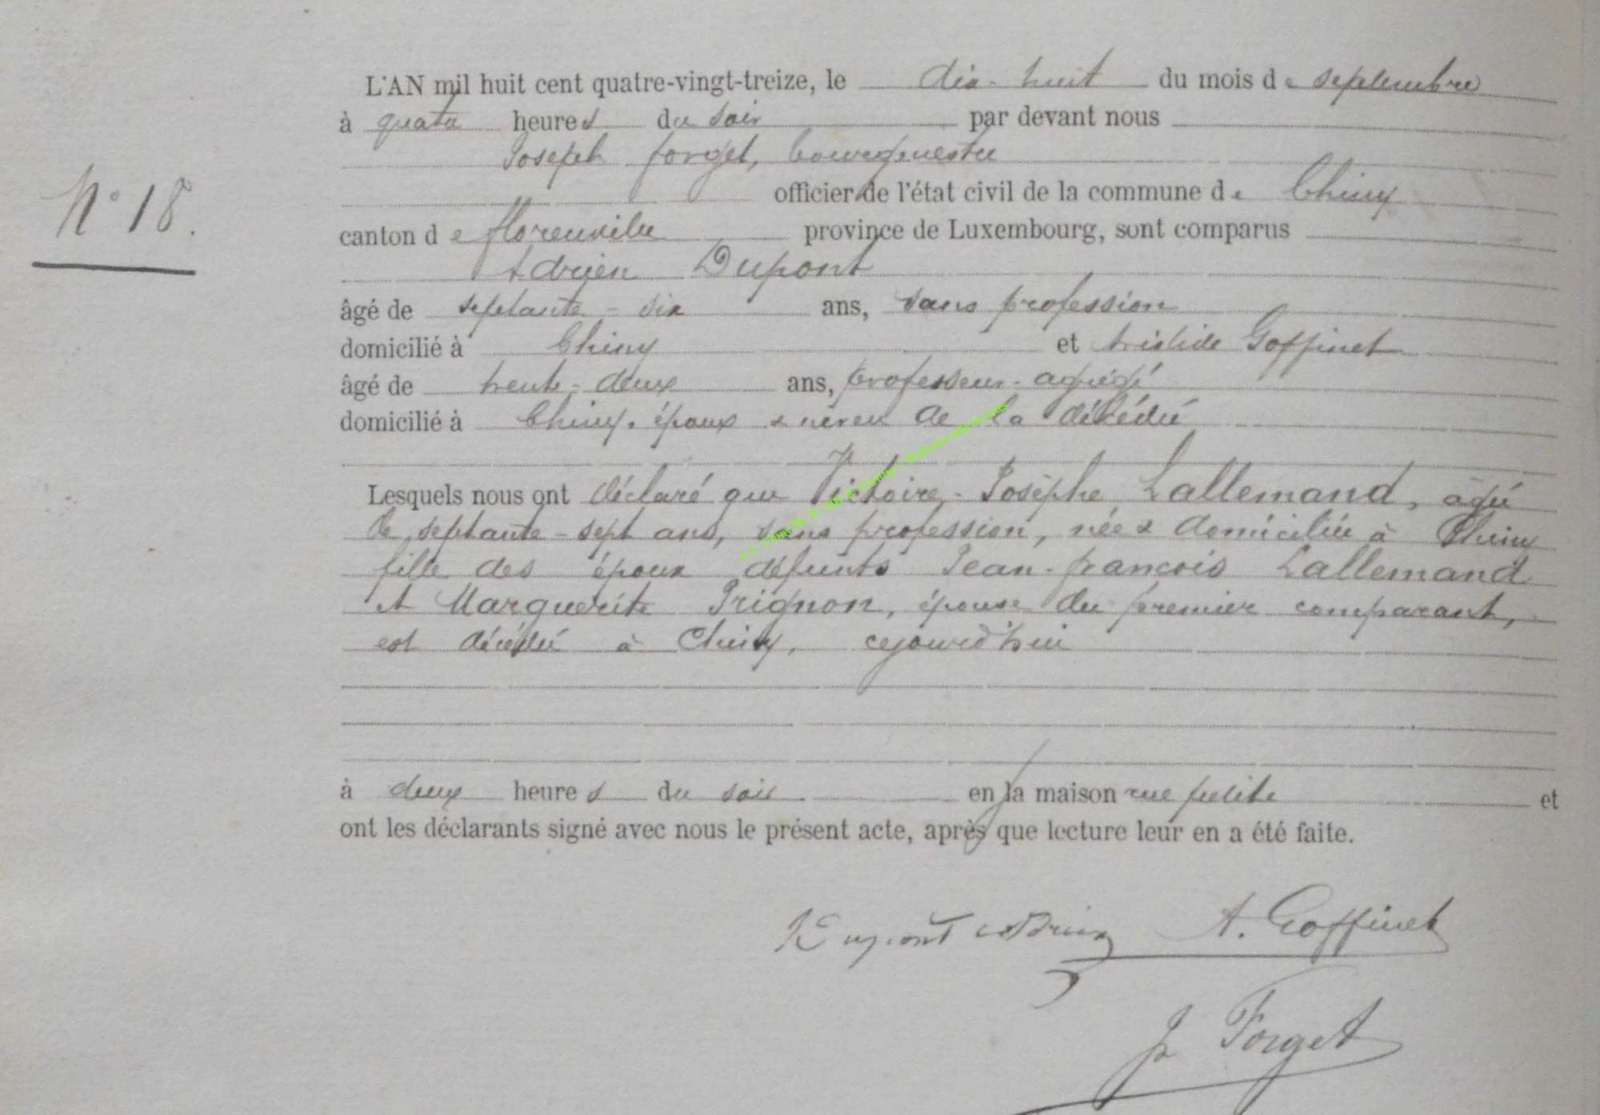 L'AN mil huit cent quatre-vingt-treize, le dix-huit du mois de septembre
à quatre heures du soir par devant nous
Joseph Forget, bourgmestre
N° 18.
officier de l'état civil de la commune de Chiny
canton de Florenville province de Luxembourg, sont comparus
Adrien Dupont
âgé de septante-six ans, sans profession
domicilié à Chiny et Aristide Goffinet
âgé de trente-deux ans, professeur-agrégé
domicilié à Chiny, époux & neveu de la décédée
Lesquels nous ont déclaré que Victoire-Josèphe Lallemand, âgée
de septante-sept ans, sans profession, née & domiciliée à Chiny
fille des époux défunts Jean-François Lallemand
et Marguerite Prignon, épouse du premier comparant,
est décédée à Chiny, cejourd'hui
à deux heures du soir en la maison rue petite et
ont les déclarants signé avec nous le présent acte, après que lecture leur en a été faite.
Dupont Adrien A. Goffinet
J. Forget